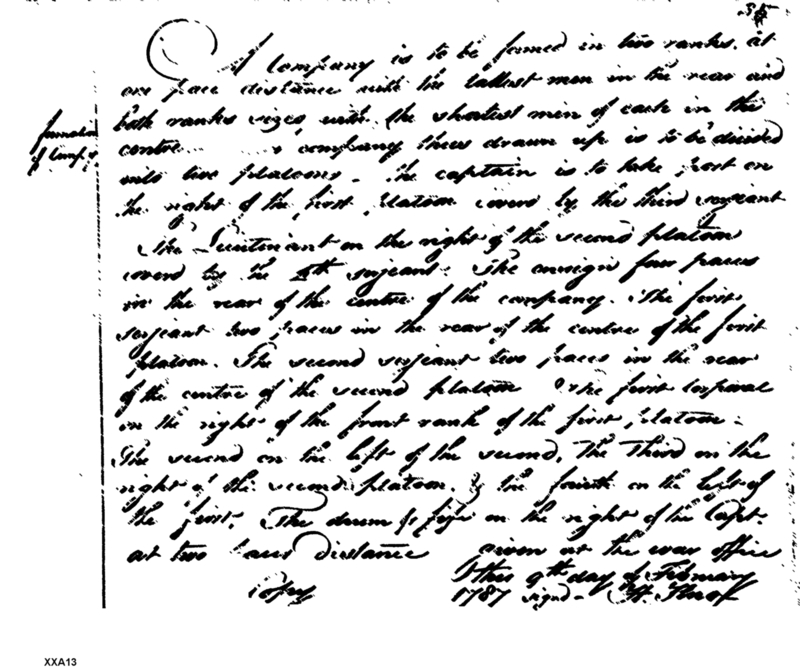 35
A Company is to be formed in two ranks. at
one pace distance with the tallest men in the rear and
both ranks sizes, with the shortest men of each in the
formation
of Comp.y
centre company thus drawn up is to be divided
into two platoons. The captain is to take post on
the right of the first platoon covered by the third serjeant
The Lieutenant on the right of the second platoon
coverd by the 4th serjeant. The ensign four paces
in the rear of the centre of the company. The first
serjeant two paces in the rear of the centre of the first
platoon. The second serjeant two paces in the rear
of the centre of the second platoon The first Corporal
on the right of the front rank of the first platoon.
The second on the left of the second, The Third on the
right of the second platoon. & the fourth on the left of
the first. The drum & fife on the right of the Capt.
at two paces distance given at the war office
this 9th day of February
Copy 1787 signd H Knox
XXA13